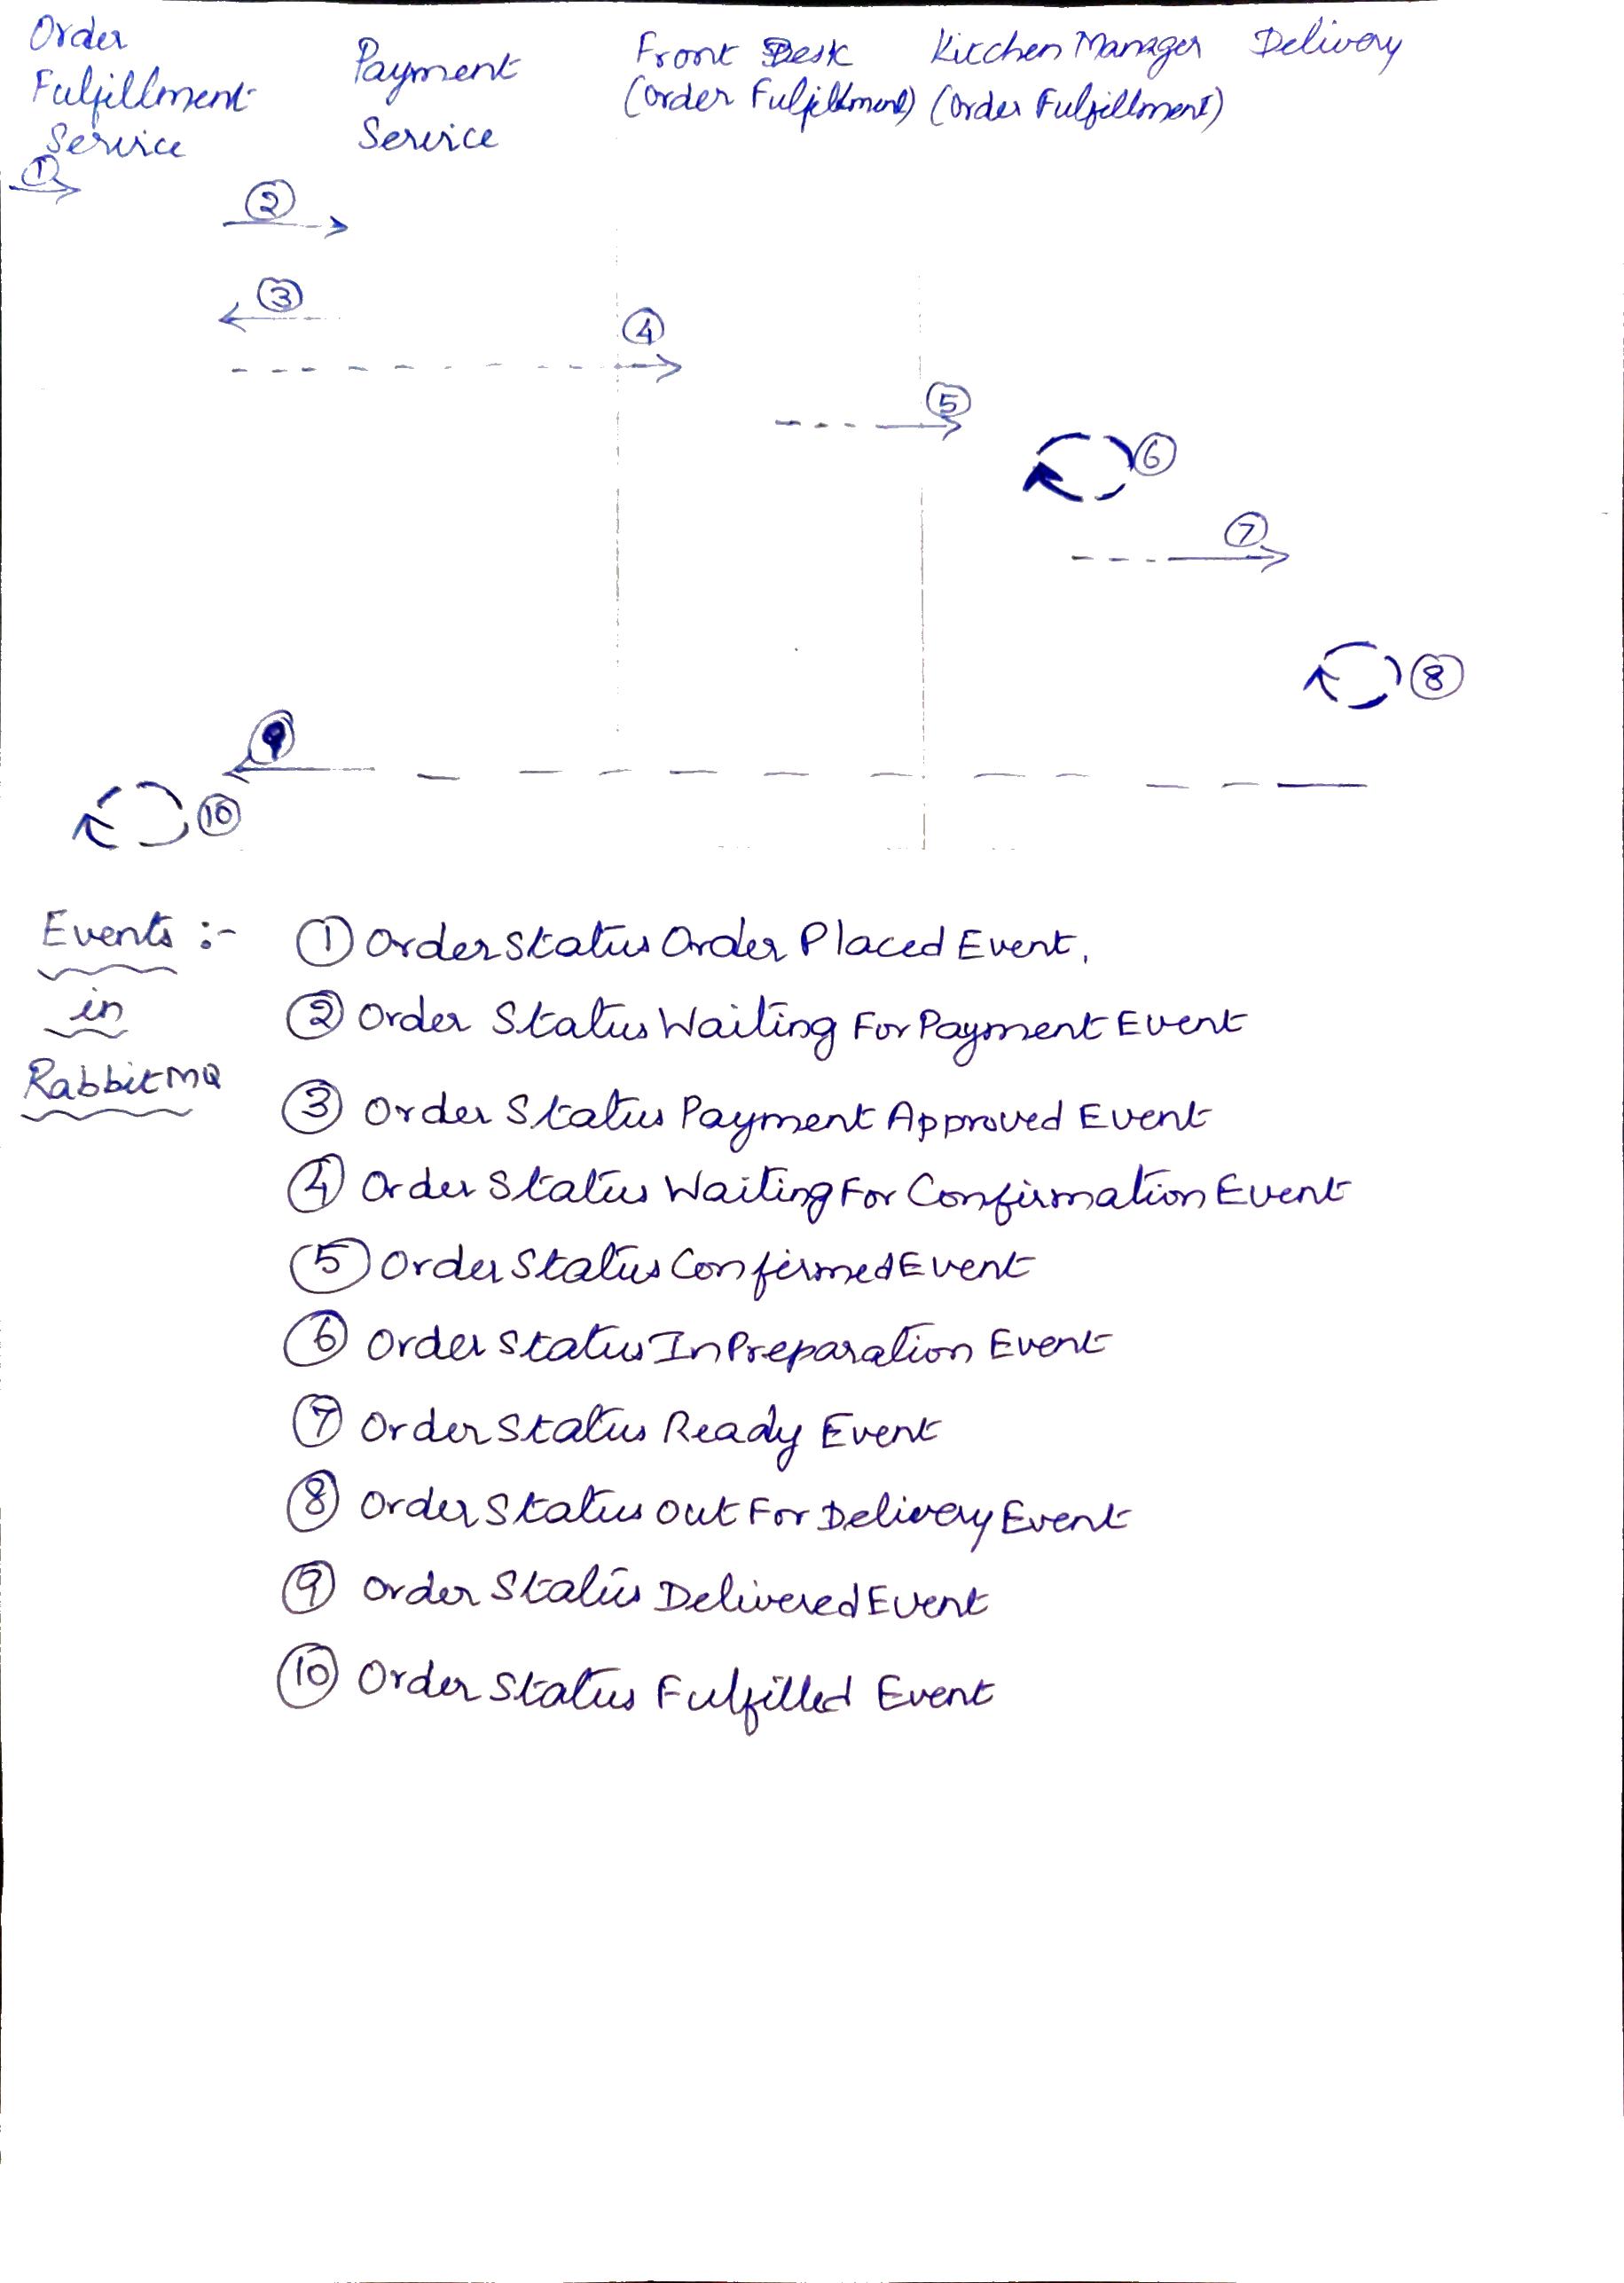 Order
Fulfillment
Service
Payment
Service
Front Desk
(Order Fulfillment)
Kitchen Manager
(Order Fulfillment)
Delivery
1
2
3
4
5
6
7
8
9
10
Events :-
in
RabbitMQ
1 OrderStatus Order Placed Event.
2 Order Status Waiting For Payment Event
3 Order Status Payment Approved Event
4 Order Status Waiting For Confirmation Event
5 Order Status Confirmed Event
6 Order Status In Preparation Event
7 Order Status Ready Event
8 Order Status Out For Delivery Event
9 Order Status Delivered Event
10 Order Status Fulfilled Event